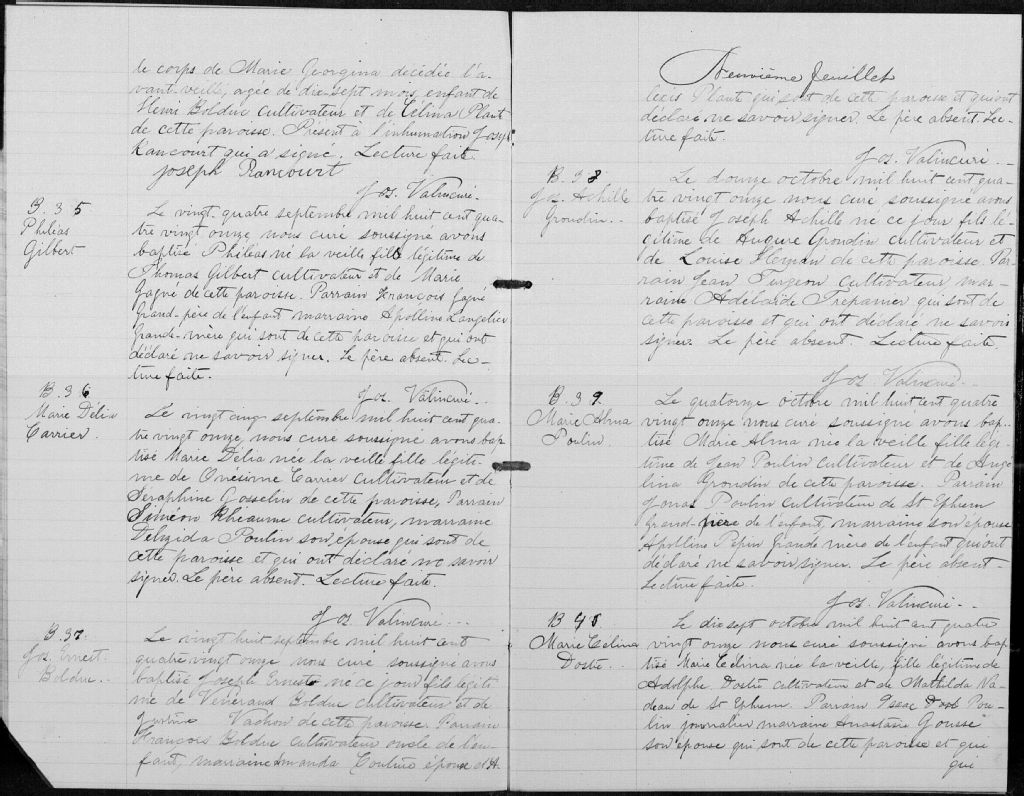 le corps de Marie Georgina décédée l'a-
vant-veille, agée de dix-sept mois, enfant de
Henri Bolduc cultivateur et de Célina Plant
de cette paroisse. Présent à l'inhumation Joseph
Rancourt qui a signé. Lecture faite.
Joseph Rancourt
Jos. Valincuri.
B. 35
Philéas
Gilbert
Le vingt-quatre septembre mil huit cent qua-
tre vingt onze, nous curé soussigné avons
baptisé Philéas né la veille fils légitime de
Thomas Gilbert cultivateur et de Marie
Gagné de cette paroisse. Parrain François Gagné
grand-père de l'enfant marraine Apolline Langelier
grande-mère qui sont de cette paroisse et qui ont
déclaré ne savoir signer. Le père absent. Lec-
ture faite.
Jos. Valincuri.
B. 36
Marie Délia
Carrier
Le vingt cinq septembre mil huit cent qua-
tre vingt onze, nous curé soussigné avons bap-
tisé Marie Délia née la veille fille légiti-
me de Onésime Carrier cultivateur et de
Séraphine Gosselin de cette paroisse, Parrain
Siméon Rhéaume cultivateur, marraine
Delzida Poulin son épouse qui sont de
cette paroisse et qui ont déclaré ne savoir
signer. Le père absent. Lecture faite.
Jos. Valincuri...
B. 37.
Jos. Ernest
Bolduc.
Le vingt huit septembre mil huit cent
quatre vingt onze nous curé soussigné avons
baptisé Joseph Ernest né ce jour fils légiti-
me de Vénérand Bolduc cultivateur et de
Justine Vachon de cette paroisse. Parrain
François Bolduc cultivateur oncle de l'en-
fant, marraine Amanda Couture épouse et A-
Neuvième feuillet
lexis Plante qui sont de cette paroisse et qui ont
déclaré ne savoir signer. Le père absent. Lec-
ture faite.
Jos. Valincuri..
B. 38
Jos. Achille
Grondin..
Le douze octobre mil huit cent qua-
tre vingt onze nous curé soussigné avons
baptisé Joseph Achille né ce jour fils lé-
gitime de Augure Grondin cultivateur et
de Louise de cette paroisse. Par-
rain Jean Turgeon cultivateur mar-
raine Adélaïde Trépanier qui sont de
cette paroisse et qui ont déclaré ne savoir
signer. Le père absent. Lecture faite.
Jos. Valincuri..
B. 39.
Marie Alma
Poulin.
Le quatorze octobre mil huit cent quatre
vingt onze nous curé soussigné avons bap-
tisé Marie Alma née la veille fille légi-
time de Jean Poulin cultivateur et de Angé
lina Grondin de cette paroisse. Parrain
Jonas Poulin cultivateur de St Ephrem
grand-père de l'enfant, marraine son épouse
Apolline Pepin grande mère de l'enfant qui ont
déclaré ne savoir signer. Le père absent.
Lecture faite.
Jos. Valincuri..
B 40
Marie Célina
Dostie.
Le dix sept octobre mil huit cent quatre
vingt onze nous curé soussigné avons bap-
tisé Marie Célina née la veille, fille légitime de
Adolphe Dostie cultivateur et de Mathilda Na-
deau de St Ephrem. Parrain Issac Pou-
lin journalier marraine Anastasie Gousse
son épouse qui sont de cette paroisse et qui
qui